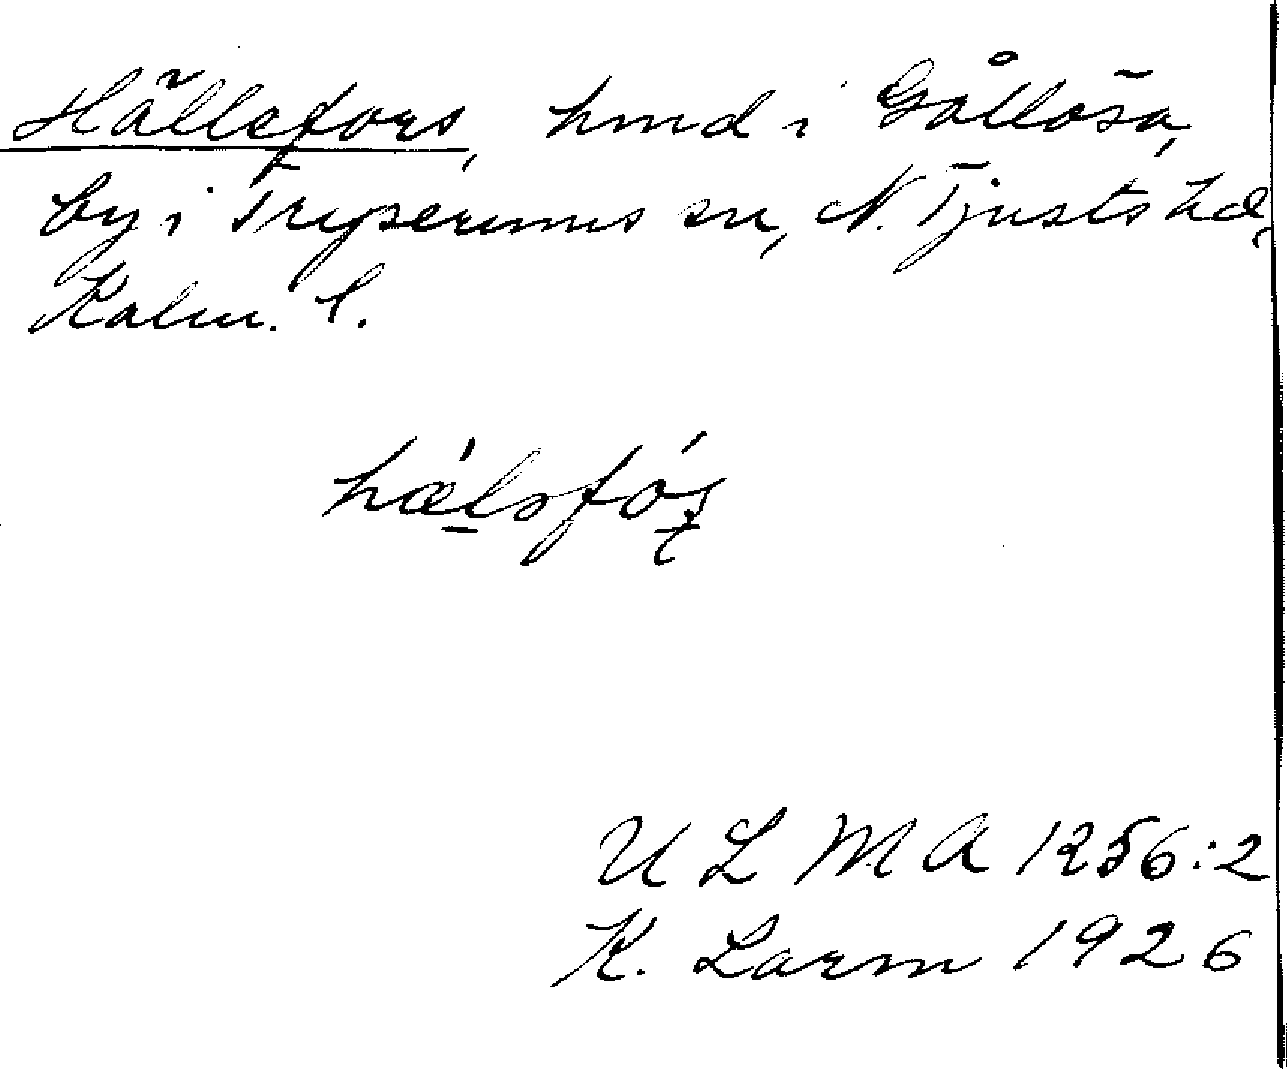 Hällefors, hmd i Gållösa,
by i Tryserums sn, N. Tjusts hd,
Kalm. l.
ULMA 1256:2
K. Larm 1926